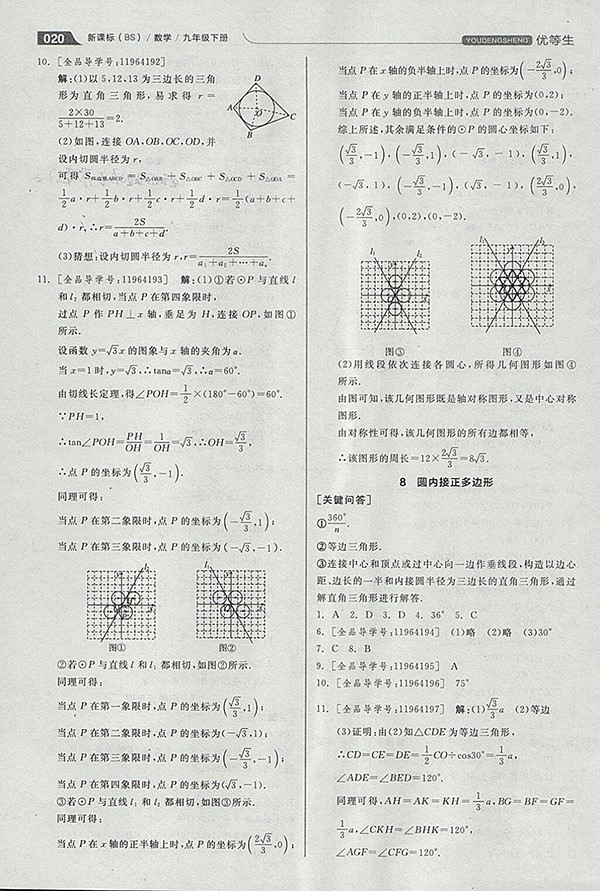 020 新课标(BS)/数学/九年级下册
YOUDENGSHENG 优等生
10. [全品导学号:11964192]
解:(1)以5,12,13为三边长的三角
形为直角三角形,易求得 r=
2×30/(5+12+13)=2.
(2)如图,连接OA,OB,OC,OD,并
设内切圆半径为r,
可得S四边形ABCD=S△OAB+S△OBC+S△OCD+S△ODA=
1/2 a·r+1/2 b·r+1/2 c·r+1/2 d·r=1/2(a+b+c+
d)·r,∴r=2S/(a+b+c+d).
(3)猜想:设内切圆半径为r,r=2S/(a₁+a₂+…+aₙ).
D
A
O
C
B
11. [全品导学号:11964193] 解:(1)①若⊙P与直线l
和l₂都相切,当点P在第四象限时,
过点P作PH⊥x轴,垂足为H,连接OP,如图①
所示.
设函数y=√3x的图象与x轴的夹角为α.
当x=1时,y=√3,∴tanα=√3,∴α=60°.
由切线长定理,得∠POH=1/2×(180°-60°)=60°.
∵PH=1,
∴tan∠POH=PH/OH=1/OH=√3,∴OH=√3/3,
∴点P的坐标为(√3/3,-1).
同理可得:
当点P在第二象限时,点P的坐标为(-√3/3,1);
当点P在第三象限时,点P的坐标为(-√3,-1).
图① 图②
②若⊙P与直线l和l₁都相切,如图②所示.
同理可得:
当点P在第一象限时,点P的坐标为(√3/3,1);
当点P在第二象限时,点P的坐标为(-√3,1);
当点P在第三象限时,点P的坐标为(-√3/3,-1);
当点P在第四象限时,点P的坐标为(√3,-1).
③若⊙P与直线l₁和l₂都相切,如图③所示.
同理可得:
当点P在x轴的正半轴上时,点P的坐标为(2√3/3,0);
当点P在x轴的负半轴上时,点P的坐标为(-2√3/3,0);
当点P在y轴的正半轴上时,点P的坐标为(0,2);
当点P在y轴的负半轴上时,点P的坐标为(0,-2).
综上所述,其余满足条件的⊙P的圆心坐标如下:
(√3/3,-1),(-√3/3,1),(-√3,-1),(√3/3,1),
(-√3,1),(-√3/3,-1),(√3,-1),(2√3/3,0),
(-2√3/3,0),(0,2),(0,-2).
图③ 图④
(2)用线段依次连接各圆心,所得几何图形如图④
所示.
由图可知,该几何图形既是轴对称图形,又是中心对称
图形.
由对称性可得,该几何图形的所有边都相等,
∴该图形的周长=12×2√3/3=8√3.
8 圆内接正多边形
[关键问答]
①360°/n.
②等边三角形.
③连接中心和顶点或过中心向一边作垂线段,构造以边心
距、边长的一半和内接圆半径为三边长的直角三角形,通过
解直角三角形进行解答.
1. A 2. D 3. D 4. 36° 5. C
6. [全品导学号:11964194] (1)略 (2)略 (3)30°
7. C 8. B
9. [全品导学号:11964195] A
10. [全品导学号:11964196] 75°
11. [全品导学号:11964197] 解:(1)√3/3 a (2)等边
(3)证明:由(2)知△CDE为等边三角形,
∴CD=CE=DE=1/2 CO÷cos30°=1/3 a,
∠ADE=∠BED=120°.
同理可得,AH=AK=KH=1/3 a,BG=BF=GF=
1/3 a,∠CKH=∠BHK=120°,
∠AGF=∠CFG=120°.